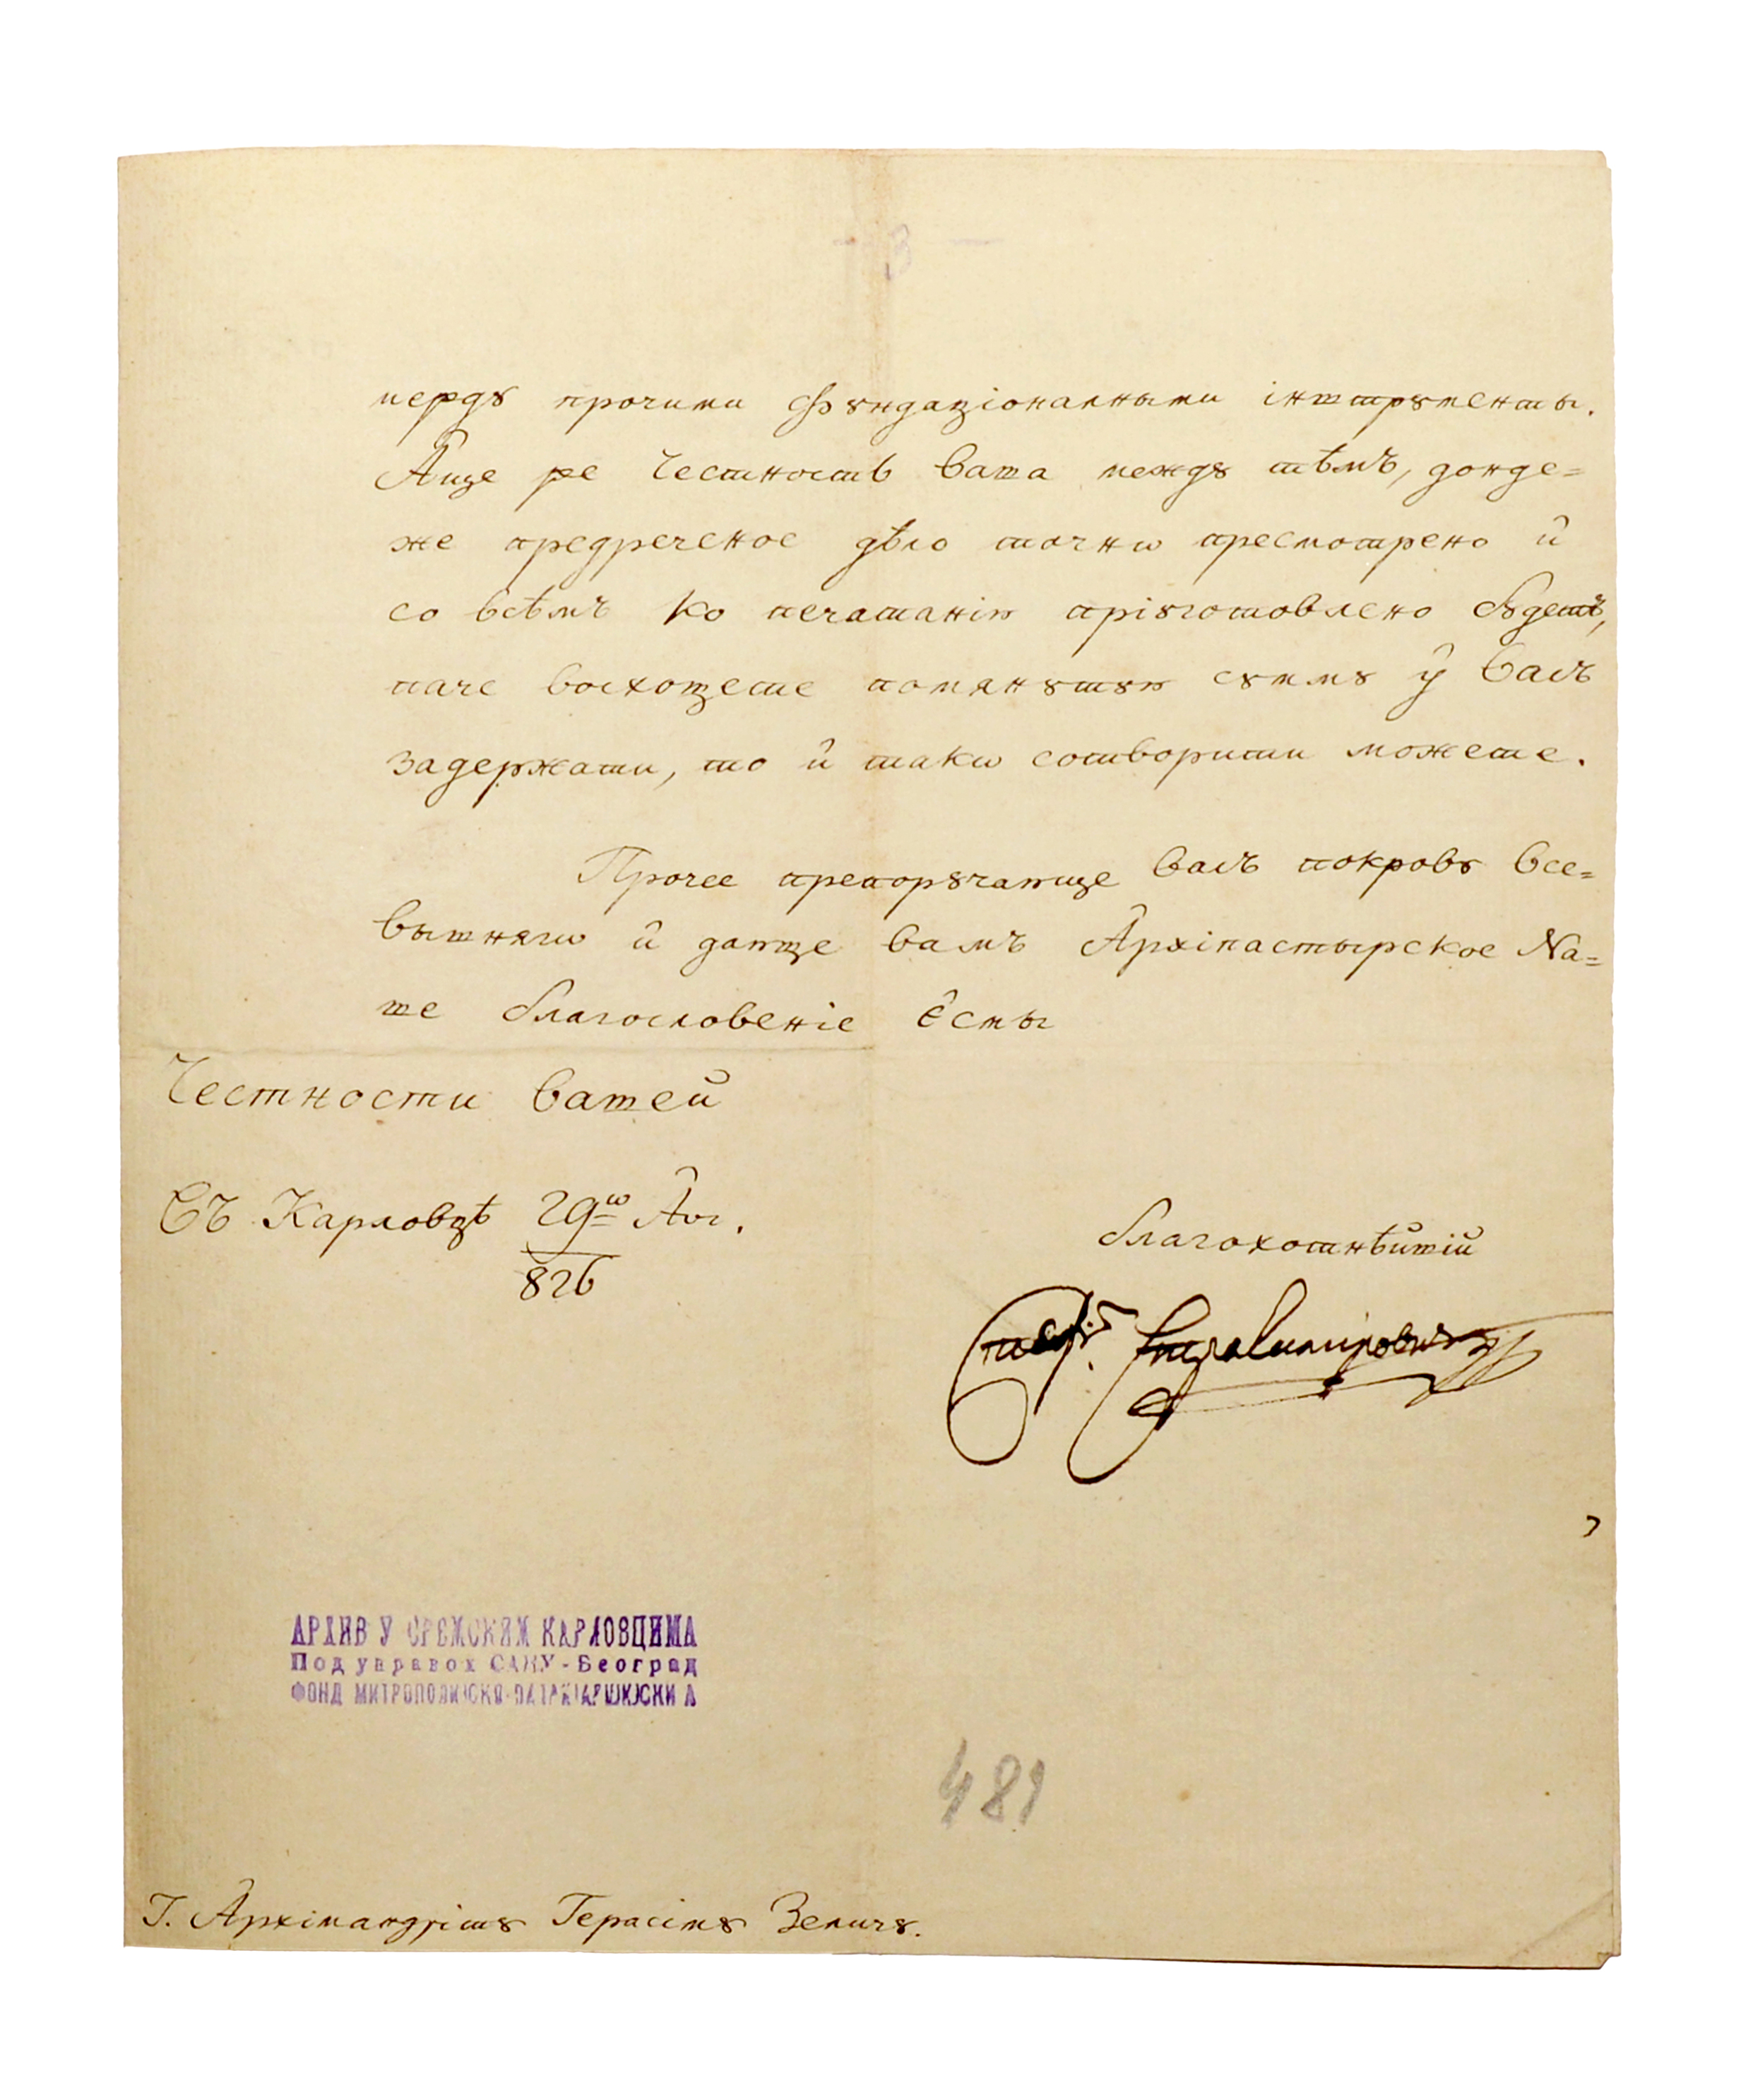 3
междꙋ прочими Фꙋндаціоналными інштрꙋменты.
Аще ре Честность Ваша междꙋ тѣмъ, донде=
же предреченое дѣло точнѡ пресмотрено и҆
со всѣмъ ко печатанію пріꙋготовлено бꙋдетъ,
паче восхощете помянꙋтꙋю сꙋммꙋ у҆ Васъ
задержати, то и҆ такѡ сотворити можете.
Прочее препорꙋчающе Васъ покровꙋ Все=
вышнягѡ и҆ дающе вамъ А҆рхіпастырское На=
ше благословеніе є҆смы
Честности Вашей
Съ Карловцѣ 29ѡ А҆ѵг.
826
благохотнѣйшій
Стеф. Стратиміровичъ
АРХИВ У СРЕМСКИМ КАРЛОВЦИМА
Под управом САНУ - Београд
ФОНД МИТРОПОЛИЈСКО-ПАТРИЈАРШИЈСКИ А
481
Г. А҆рхімандрітꙋ Герасімꙋ Зеличꙋ.